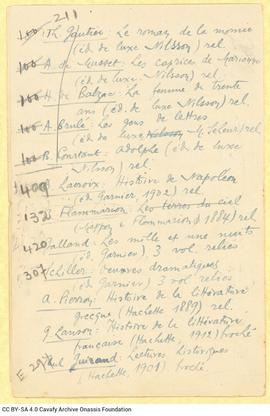 211
100 Th. Gautier: Le roman de la momie
(éd. de luxe Nilsson) rel.
100 A. de Musset: Les caprices de Marianne
(éd. de luxe. Nilsson) rel.
100 H. de Balzac: La femme de trente
ans (éd. de luxe Nilsson) rel.
100 A. Brulé: Les gens de lettres
(éd. de luxe Nilsson M. Seheur) rel.
100 B. Constant: Adolphe (éd. de luxe
Nilsson) rel.
400 Lacroix: Histoire de Napoléon
(éd Garnier, 1902) rel.
132 Flammarion: Les terres du ciel
(Marpon & Flammarion 1884) rel
420 Galland: Les mille et une nuits
(éd. Garnier), 3 vol. reliés
307 Schiller: Oeuvres dramatiques
(éd Garnier) 3 vol reliés
A. Pierron: Histoire de la littérature
grecque (Hachette 1889) rel.
G Lanson: Histoire de la littérature
française (Hachette, 1912) broché
Guiraud: Lectures historiques
(Hachette, 1901) broché
CC BY-SA 4.0 Cavafy Archive Onassis Foundation